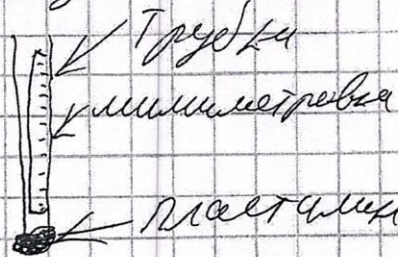 Трубки
миллиметровка
пластилин